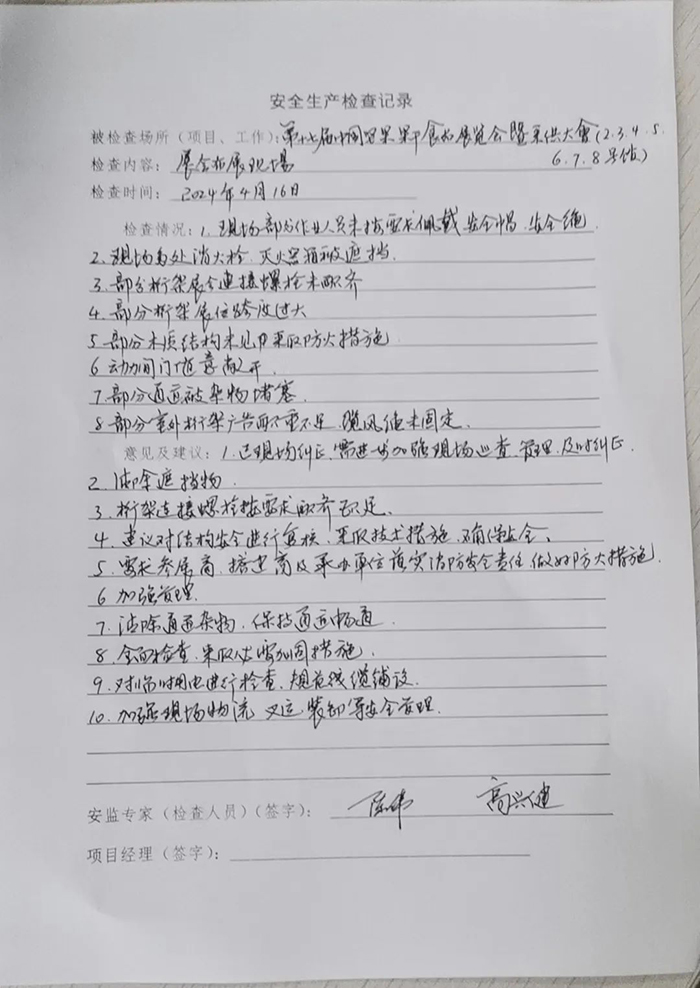 安全生产检查记录
被检查场所（项目、工作）：第十七届中国坚果果干食品展览会暨采供大會（2.3.4.5.
6.7.8号馆）
检查内容：展会布展现场
检查时间：2024年4月16日
检查情况：1. 现场部分作业人员未按要求佩戴安全帽、安全绳
2. 现场多处消火栓、灭火器箱被遮挡.
3. 部分桁架展台连接螺栓未配齐
4. 部分桁架展位跨度过大
5. 部分木质结构未见采取防火措施
6 动力间门随意敞开.
7. 部分通道被杂物堵塞.
8. 部分室外桁架广告面配重不足、缆风绳未固定.
意见及建议：1. 已现场纠正，需进一步加强现场巡查、管理、及时纠正
2. 清除遮挡物
3. 桁架连接螺栓按要求配齐
4. 建议对结构安全进行复核、采取技术措施、确保安全.
5. 要求参展商、搭建商及承办单位落实消防安全责任、做好防火措施.
6 加强管理.
7. 清除通道杂物、保持通道畅通.
8. 全面检查、采取必要加固措施.
9. 对临时用电进行检查、规范线缆铺设.
10. 加强现场物流、装卸等安全管理.
安监专家（检查人员）（签字）： 高兴健
项目经理（签字）：